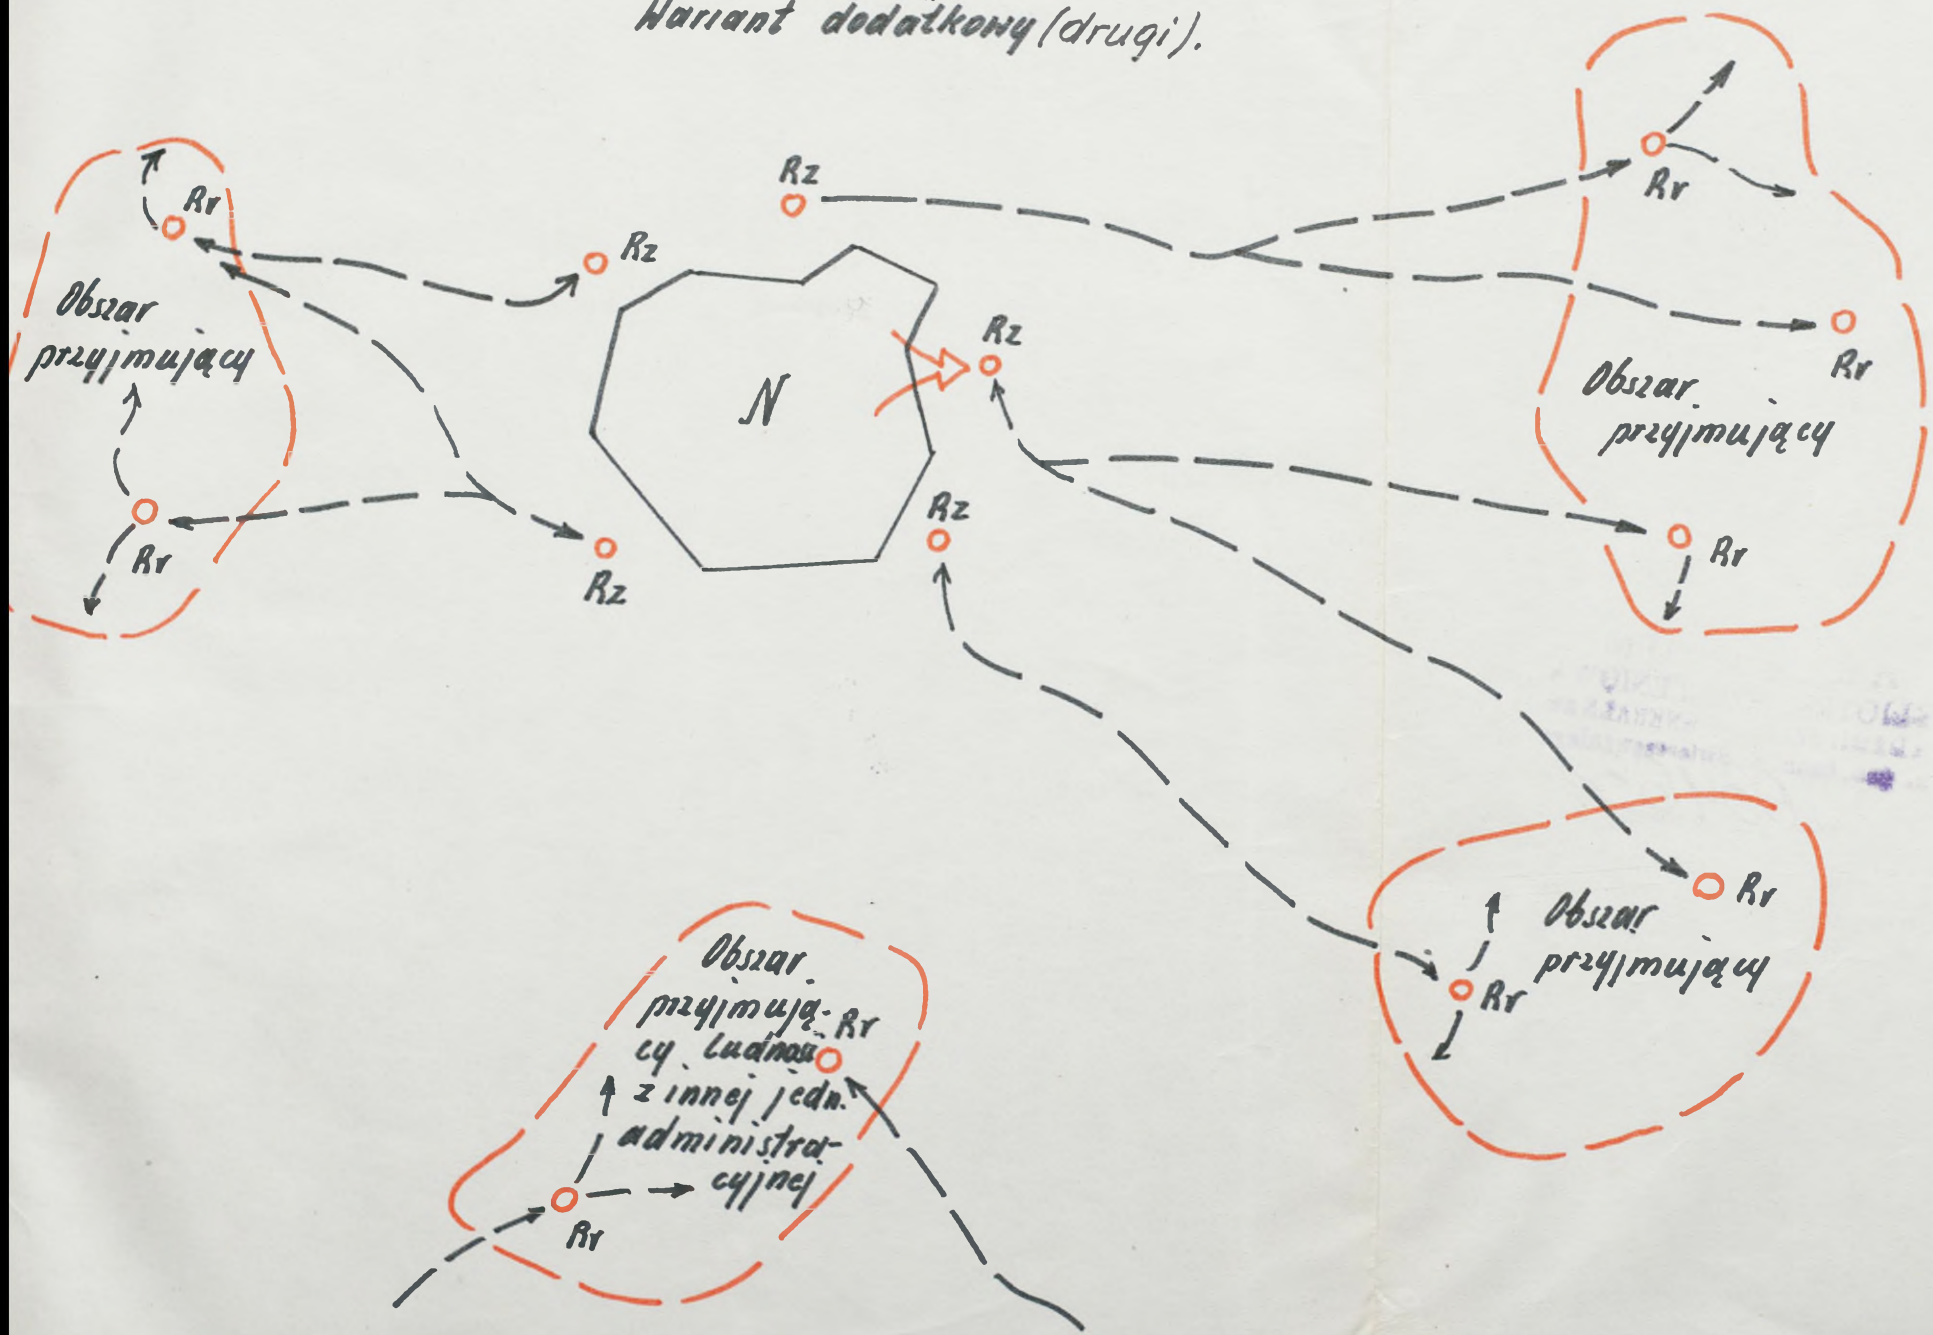 Wariant dodatkowy (drugi).
Rz
Rr
Rr
Rz
Obszar
przyjmujący
Rz
N
Rr
Obszar
przyjmujący
Rz
Rr
Rr
Rz
Rr
Obszar
przyjmujący
Rr
Obszar
przyjmują-
Rr
cy ludność
z innej jedn.
administra-
cyjnej
Rr